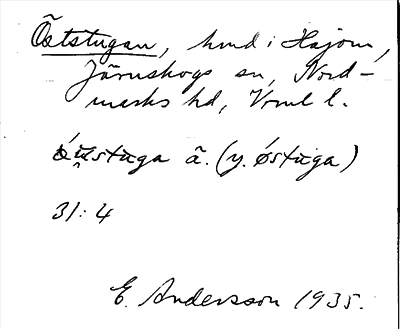 Öststugan, hmd i Hajom,
Järnskogs sn, Nord-
marks hd, Vrml l.
ǿu̯stuga ä. (y. ǿstuga)
31: 4
E. Andersson 1935.